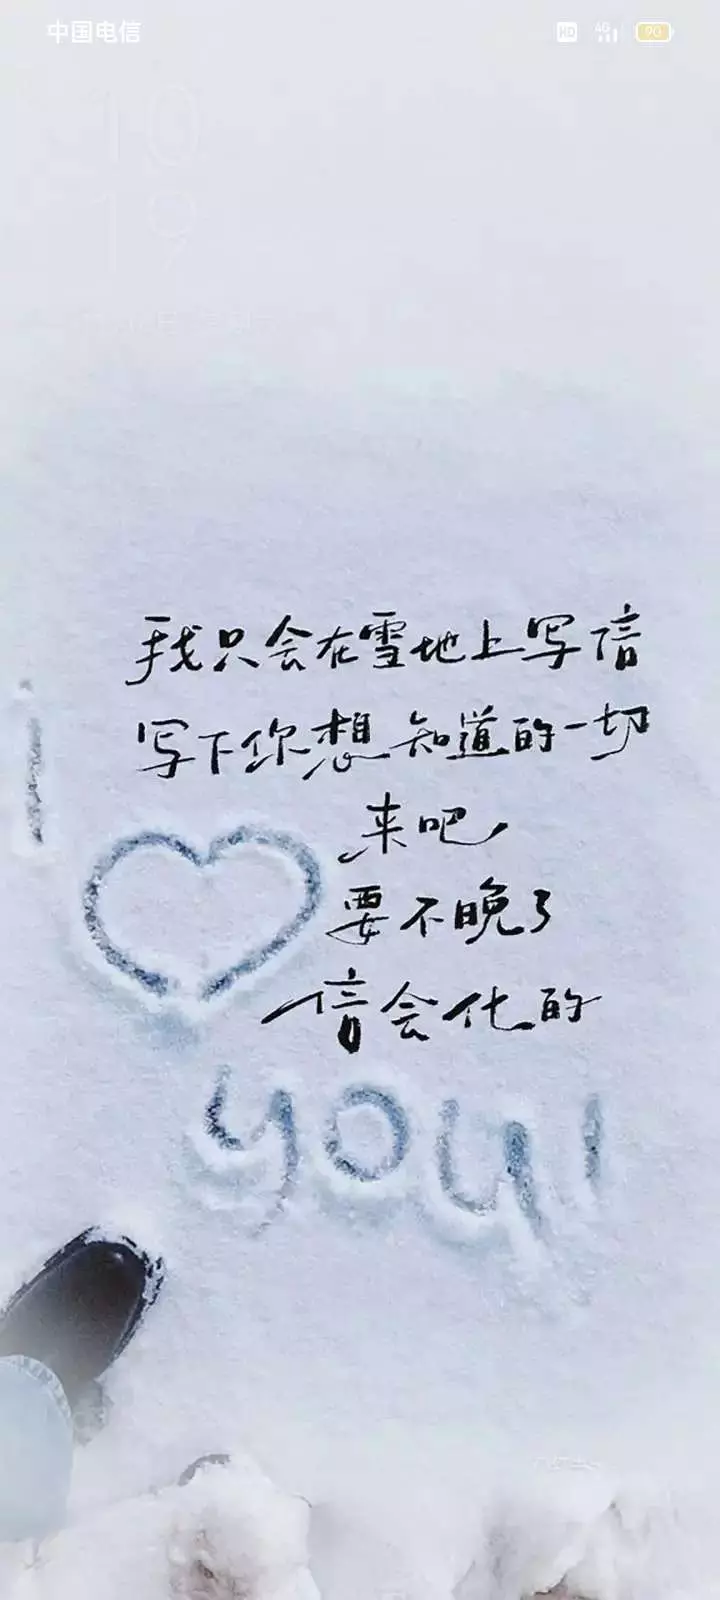 中国电信 HD 4G 90
10
19
我只会在雪地上写信
写下你想知道的一切
来吧
要不晚了
信会化的
i
you!